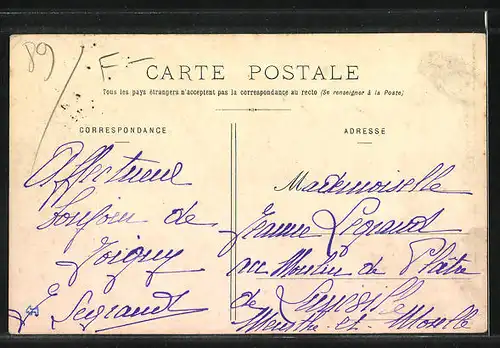 89
F.-
CARTE POSTALE
Tous les pays étrangers n'acceptent pas la correspondance au recto (Se renseigner à la Poste)
CORRESPONDANCE
ADRESSE
Affectueux
bonjour de
Joigny
E Legrand
Mademoiselle
Jeanne Legrand
au Moulin de Plâtre
de Lunéville
Meurthe-et-Moselle